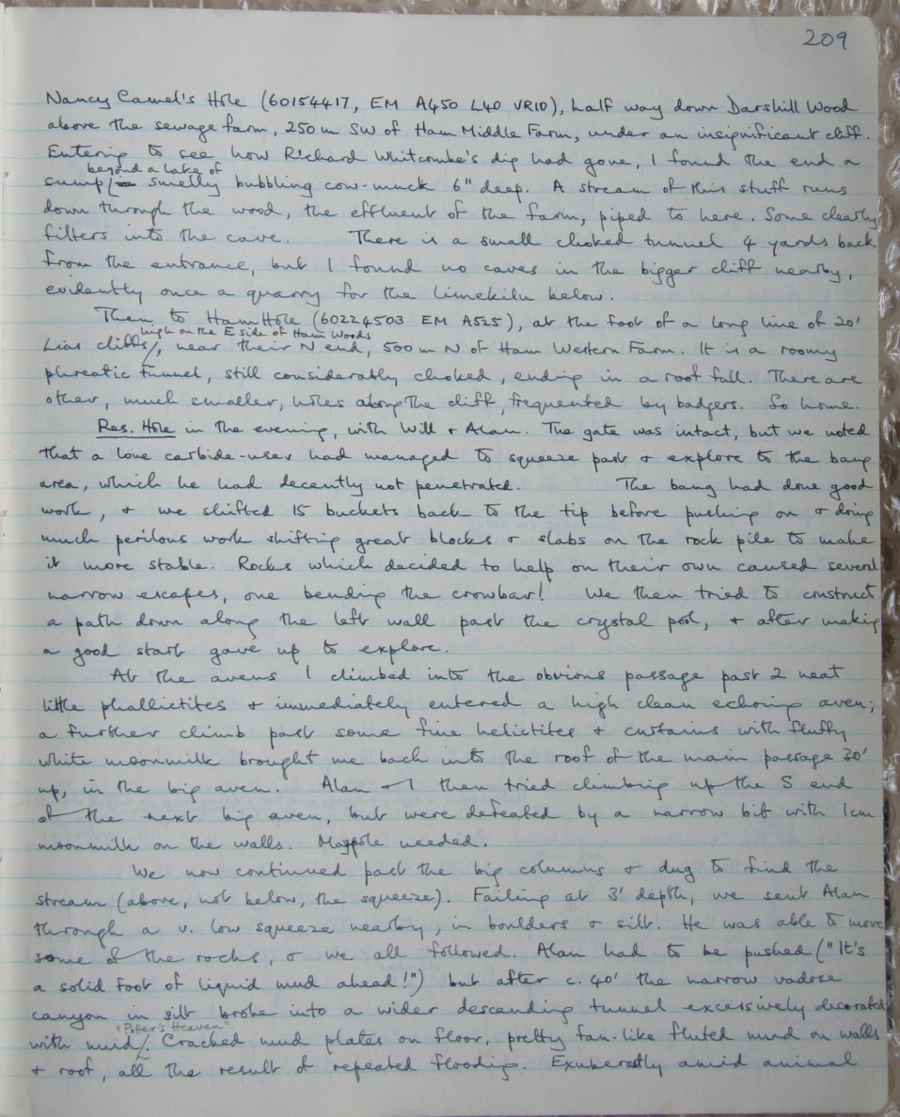 209
Nancy Camel's Hole (60154417, EM A450 L40 VR10), half way down Darshill Wood
above the sewage farm, 250 m SW of Ham Middle Farm, under an insignificant cliff.
Entering to see how Richard Whitcombe's dig had gone, I found the end a
beyond a lake of
sump/ smelly bubbling cow-muck 6" deep. A stream of this stuff runs
down through the wood, the effluent of the farm, piped to here. Some clearly
filters into the cave. There is a small choked tunnel 4 yards back
from the entrance, but I found no caves in the bigger cliff nearby,
evidently once a quarry for the limekiln below.
Then to Ham Hole (60224503 EM A525), at the foot of a long line of 20'
high on the E side of Ham Woods
Lias cliffs/, near their N end, 500 m N of Ham Western Farm. It is a roomy
phreatic tunnel, still considerably choked, ending in a roof fall. There are
other, much smaller, holes along the cliff, frequented by badgers. So home.
Res. Hole in the evening, with Will + Alan. The gate was intact, but we noted
that a lone carbide-user had managed to squeeze past + explore to the bang
area, which he had decently not penetrated. The bang had done good
work, + we shifted 15 buckets back to the tip before pushing on + doing
much perilous work shifting great blocks + slabs on the rock pile to make
it more stable. Rocks which decided to help on their own caused several
narrow escapes, one bending the crowbar! We then tried to construct
a path down along the left wall past the crystal pool, + after making
a good start gave up to explore.
At the avens I climbed into the obvious passage past 2 neat
little phallictites + immediately entered a high clean echoing aven;
a further climb past some fine helictites + curtains with fluffy
white moonmilk brought me back into the roof of the main passage 30'
up, in the big aven. Alan + I then tried climbing up the S end
of the next big aven, but were defeated by a narrow bit with 1cm
moonmilk on the walls. Maypole needed.
We now continued past the big columns + dug to find the
stream (above, not below, the squeeze). Failing at 3' depth, we sent Alan
through a v. low squeeze nearby, in boulders + silt. He was able to move
some of the rocks, + we all followed. Alan had to be pushed ("It's
a solid foot of liquid mud ahead!") but after c. 40' the narrow vadose
canyon in silt broke into a wider descending tunnel excessively decorated
"Peter's Heaven"
with mud/. Cracked mud plates on floor, pretty fan-like fluted mud on walls
+ roof, all the result of repeated flooding. Exuberantly amid animal